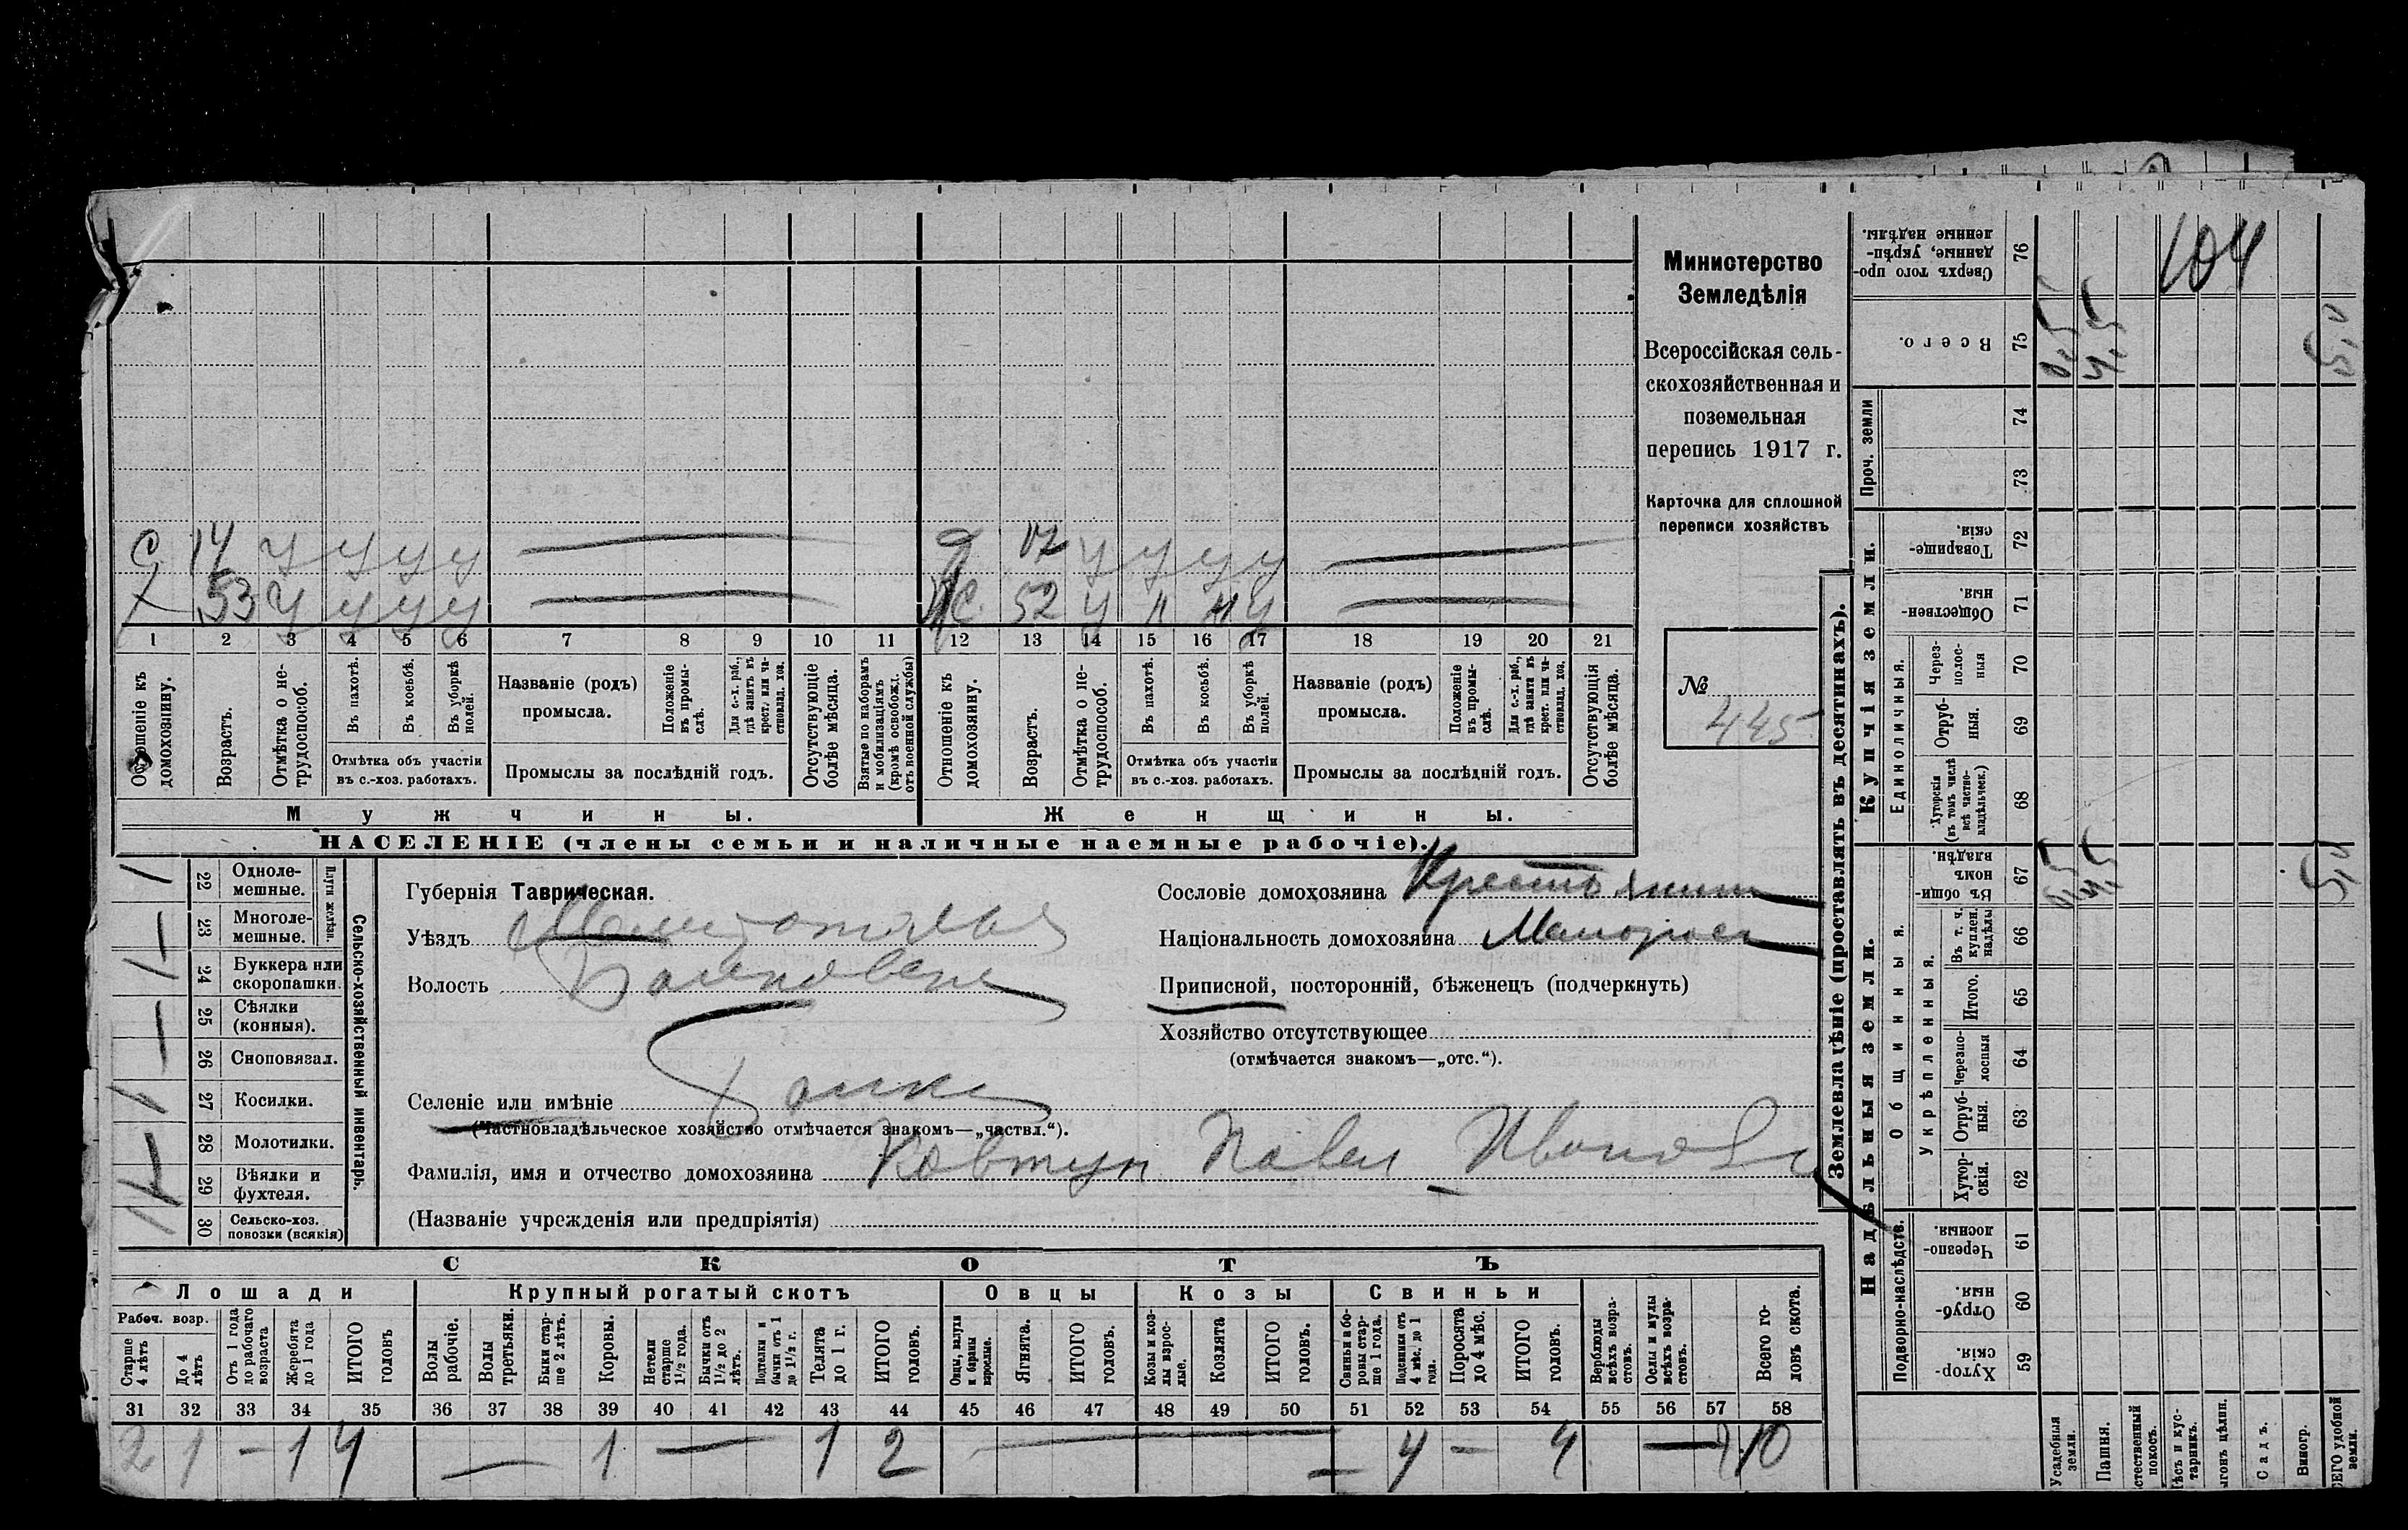 Министерство
Земледѣлія
Всероссійская сель-
скохозяйственная и
поземельная
перепись 1917 г.
Карточка для сплошной
переписи хозяйствъ
№
445
104
С 14 У У У У
Д 17 У У У У
Х 53 У У У У
ЖС 52 У " " У
1 2 3 4 5 6 7 8 9 10 11 12 13 14 15 16 17 18 19 20 21
Отношеніе къ домохозяину.
Возрастъ.
Отмѣтка о не-трудоспособ.
Въ пахотѣ.
Въ косьбѣ.
Въ уборкѣ полей.
Отмѣтка объ участіи
въ с.-хоз. работахъ.
Названіе (родъ)
промысла.
Положеніе въ промы-слѣ.
Для с.-х. раб., гдѣ занятъ въ крест. или ча-стновлад. хоз.
Промыслы за послѣдній годъ.
Отсутствующіе болѣе мѣсяца.
Взятые по наборамъ и мобилизаціямъ (кромѣ освобожд. отъ военной службы)
Отношеніе къ домохозяину.
Возрастъ.
Отмѣтка о не-трудоспособ.
Въ пахотѣ.
Въ косьбѣ.
Въ уборкѣ полей.
Отмѣтка объ участіи
въ с.-хоз. работахъ.
Названіе (родъ)
промысла.
Положеніе въ промы-слѣ.
Для с.-х. раб., гдѣ занята въ крест. или ча-стновлад. хоз.
Промыслы за послѣдній годъ.
Отсутствующія болѣе мѣсяца.
Мужчины.
Женщины.
НАСЕЛЕНІЕ (члены семьи и наличные наемные рабочіе).
Сельско-хозяйственный инвентарь.
Плуги желѣзн.
22 Одноле-мешные. 1
23 Многоле-мешные. —
24 Буккера или скоропашки. 1
25 Сѣялки (конныя). —
26 Сноповязал.
27 Косилки. 1
28 Молотилки. —
29 Вѣялки и фухтеля.
30 Сельско-хоз. повозки (всякія)
Губернія Таврическая.
Уѣздъ Мелитопольск
Волость Балковск
Селеніе или имѣніе Балки
(Частновладѣльческое хозяйство отмѣчается знакомъ—„частвл.“).
Фамилія, имя и отчество домохозяина Ковтун Павел Иванов
(Названіе учрежденія или предпріятія)
Сословіе домохозяина Крестьянин
Національность домохозяина Малорос
Приписной, посторонній, бѣженецъ (подчеркнуть)
Хозяйство отсутствующее
(отмѣчается знакомъ—„отс.“).
СКОТЪ
Лошади
Крупный рогатый скотъ
Овцы
Козы
Свиньи
Рабоч. возр.
Старше 4 лѣтъ
До 4 лѣтъ
Отъ 1 года до рабочаго возраста
Жеребята до 1 года
ИТОГО головъ
Волы рабочіе.
Волы третьяки.
Быки стар-ше 2 лѣтъ.
Коровы.
Нетели старше 1½ года.
Бычки отъ 1½ до 2 лѣтъ.
Подтелки и бычки отъ 1 до 1½ г.
Телята до 1 г.
ИТОГО головъ.
Овцы, валухи и бараны взрослые.
Ягнята.
ИТОГО головъ.
Козы и коз-лы взрос-лые.
Козлята
ИТОГО головъ.
Свиньи и бо-ровы стар-ше 1 года.
Подсвинки отъ 4 мѣс. до 1 года.
Поросята до 4 мѣс.
ИТОГО головъ.
Верблюды всѣхъ возра-стовъ.
Ослы и мулы всѣхъ возра-стовъ.
Всего го-ловъ скота.
31 32 33 34 35 36 37 38 39 40 41 42 43 44 45 46 47 48 49 50 51 52 53 54 55 56 57 58
2 1 — 1 4 — 1 — 1 2 — — 4 — 4 — 10
Землевладѣніе (проставлять въ десятинахъ).
Купчія земли.
Надѣльныя земли.
Сверхъ того про-данные, укрѣп-ленные надѣлы. 76
Всего. 75 0,5 4,5 5,0
Проч. земли
74
73
Товарище-скія. 72
Обществен-ныя. 71
Единоличныя.
Через-полос-ныя 70
Отруб-ныя. 69
Хуторскія (въ томъ числѣ всѣ частно-владѣльческ.) 68
Общинныя.
Въ общин-номъ владѣн. 67 0,5 4,5 5,0
Укрѣпленныя.
Въ т. ч. куплен. надѣлы 66
Итого. 65
Черезпо-лосныя 64
Отруб-ныя. 63
Хутор-скія. 62
Подворно-наслѣдств.
Черезпо-лосныя. 61
Отруб-ныя. 60
Хутор-скія. 59
Усадебныя земли.
Пашня.
стественный покосъ.
ѣсъ и кус-тарникъ.
ыгонъ цѣлин.
Садъ.
Виногр.
СЕГО удобной земли.